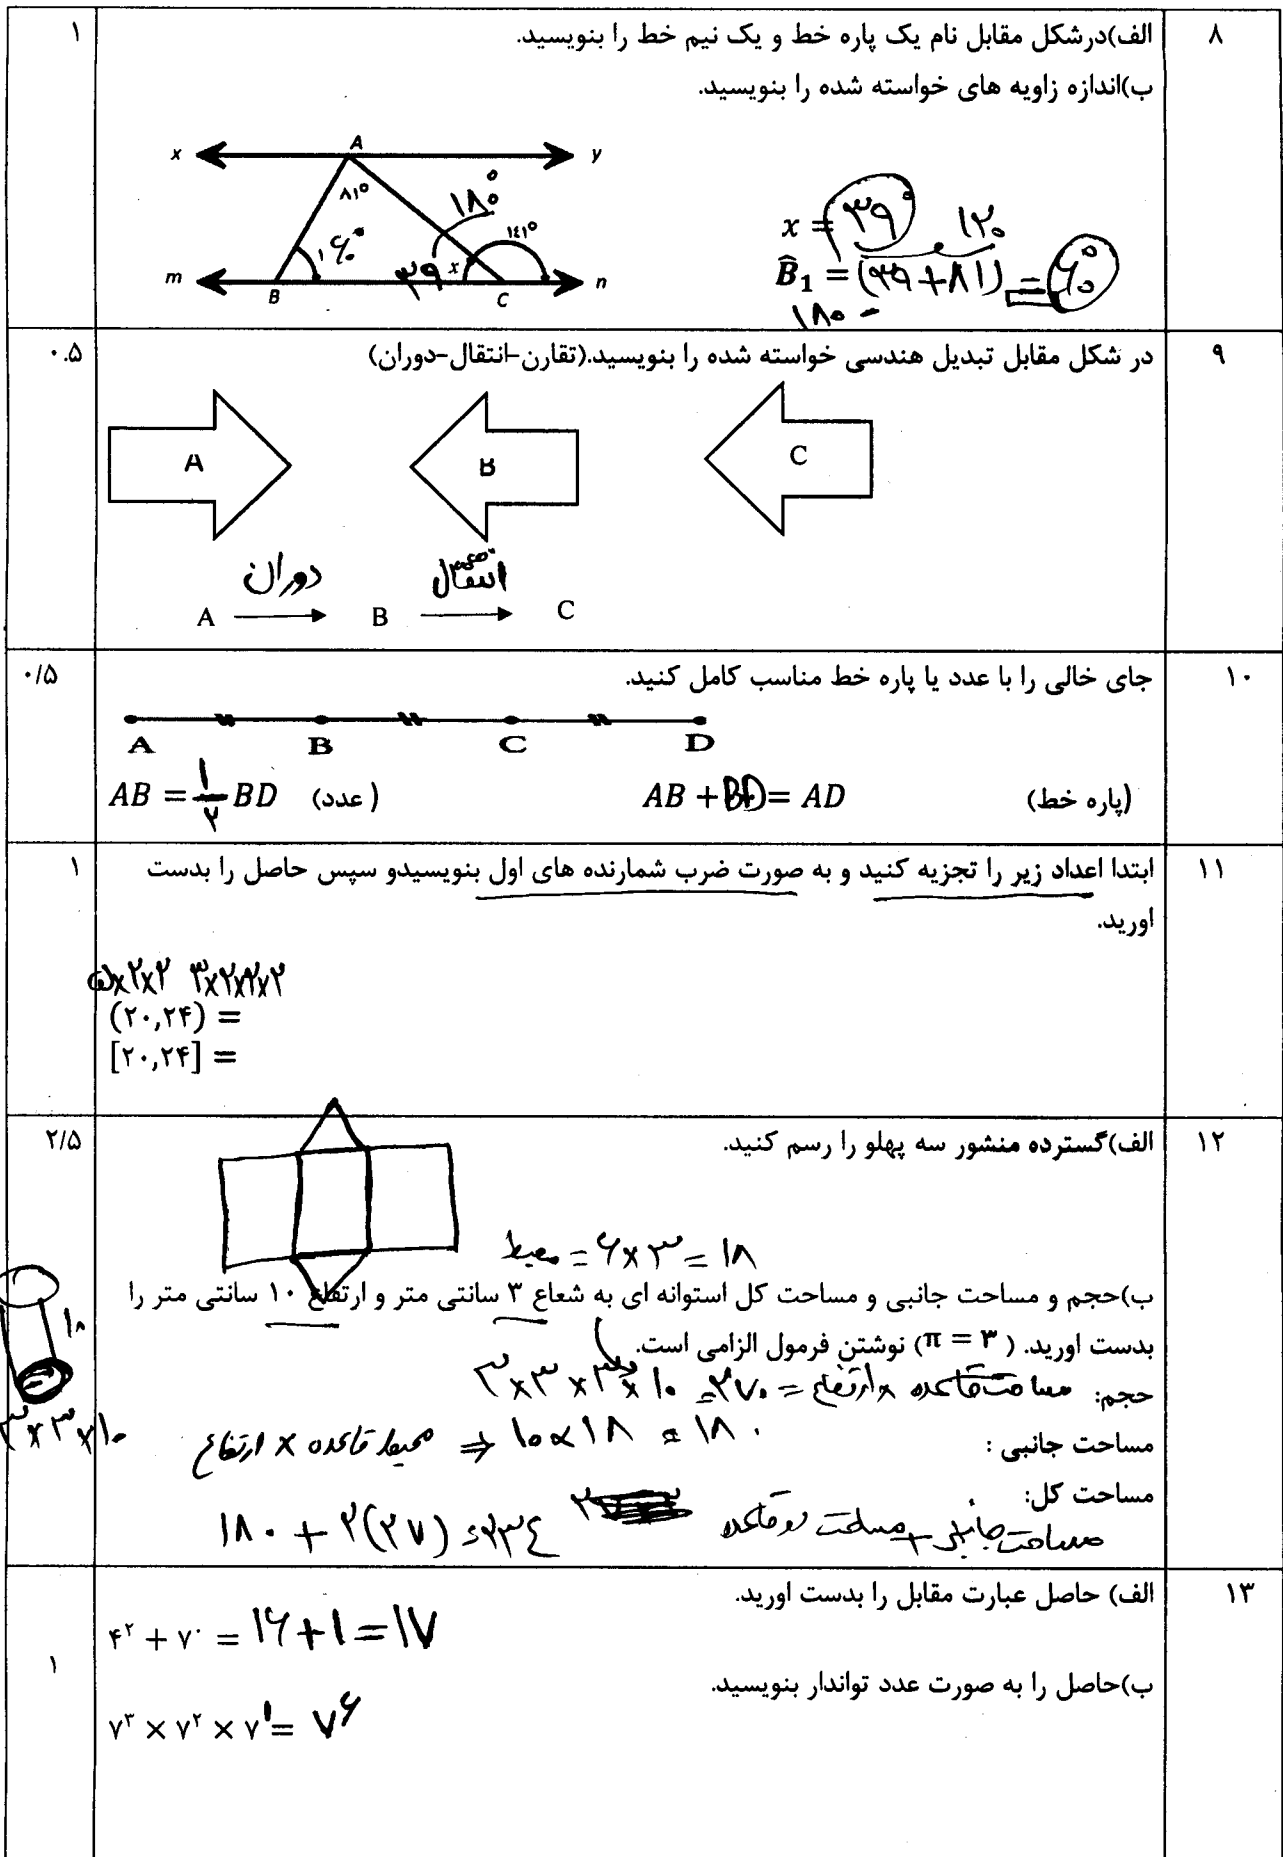 ۸
الف)درشکل مقابل نام یک پاره خط و یک نیم خط را بنویسید.
۱
ب)اندازه زاویه های خواسته شده را بنویسید.
x A y
۸۱° ۱۸۰° ۱۴۱°
۱ ۶۰° ۳۹ x
m B C n
x = ۳۹° ۱۲۰
B̂₁ = (۳۹+۸۱) = ۶۰°
۱۸۰ -
۹
در شکل مقابل تبدیل هندسی خواسته شده را بنویسید.(تقارن-انتقال-دوران)
۰.۵
A B C
دوران انتقال
A → B → C
۱۰
جای خالی را با عدد یا پاره خط مناسب کامل کنید.
۰/۵
A B C D
(پاره خط) AB + BD = AD
(عدد) AB = ۱/۲ BD
۱۱
ابتدا اعداد زیر را تجزیه کنید و به صورت ضرب شمارنده های اول بنویسیدو سپس حاصل را بدست
۱
اورید.
۵×۲×۲ ۳×۲×۲×۲
(۲۰,۲۴) =
[۲۰,۲۴] =
۱۲
الف)گسترده منشور سه پهلو را رسم کنید.
۲/۵
محیط = ۶×۳ = ۱۸
ب)حجم و مساحت جانبی و مساحت کل استوانه ای به شعاع ۳ سانتی متر و ارتفاع ۱۰ سانتی متر را
۱۰
بدست اورید. ( π = ۳) نوشتن فرمول الزامی است.
حجم: مساحت قاعده × ارتفاع = ۲۷۰ = ۳×۳×۳×۱۰
۳×۳×۱۰
مساحت جانبی :
محیط قاعده × ارتفاع ⇒ ۱۰×۱۸ = ۱۸۰
مساحت کل:
مساحت جانبی + مساحت دو قاعده
۱۸۰ + ۲(۲۷) = ۲۳۴
۱۳
الف) حاصل عبارت مقابل را بدست اورید.
۴² + ۷⁰ = ۱۶+۱=۱۷
۱
ب)حاصل را به صورت عدد تواندار بنویسید.
۷³ × ۷² × ۷¹ = ۷⁶